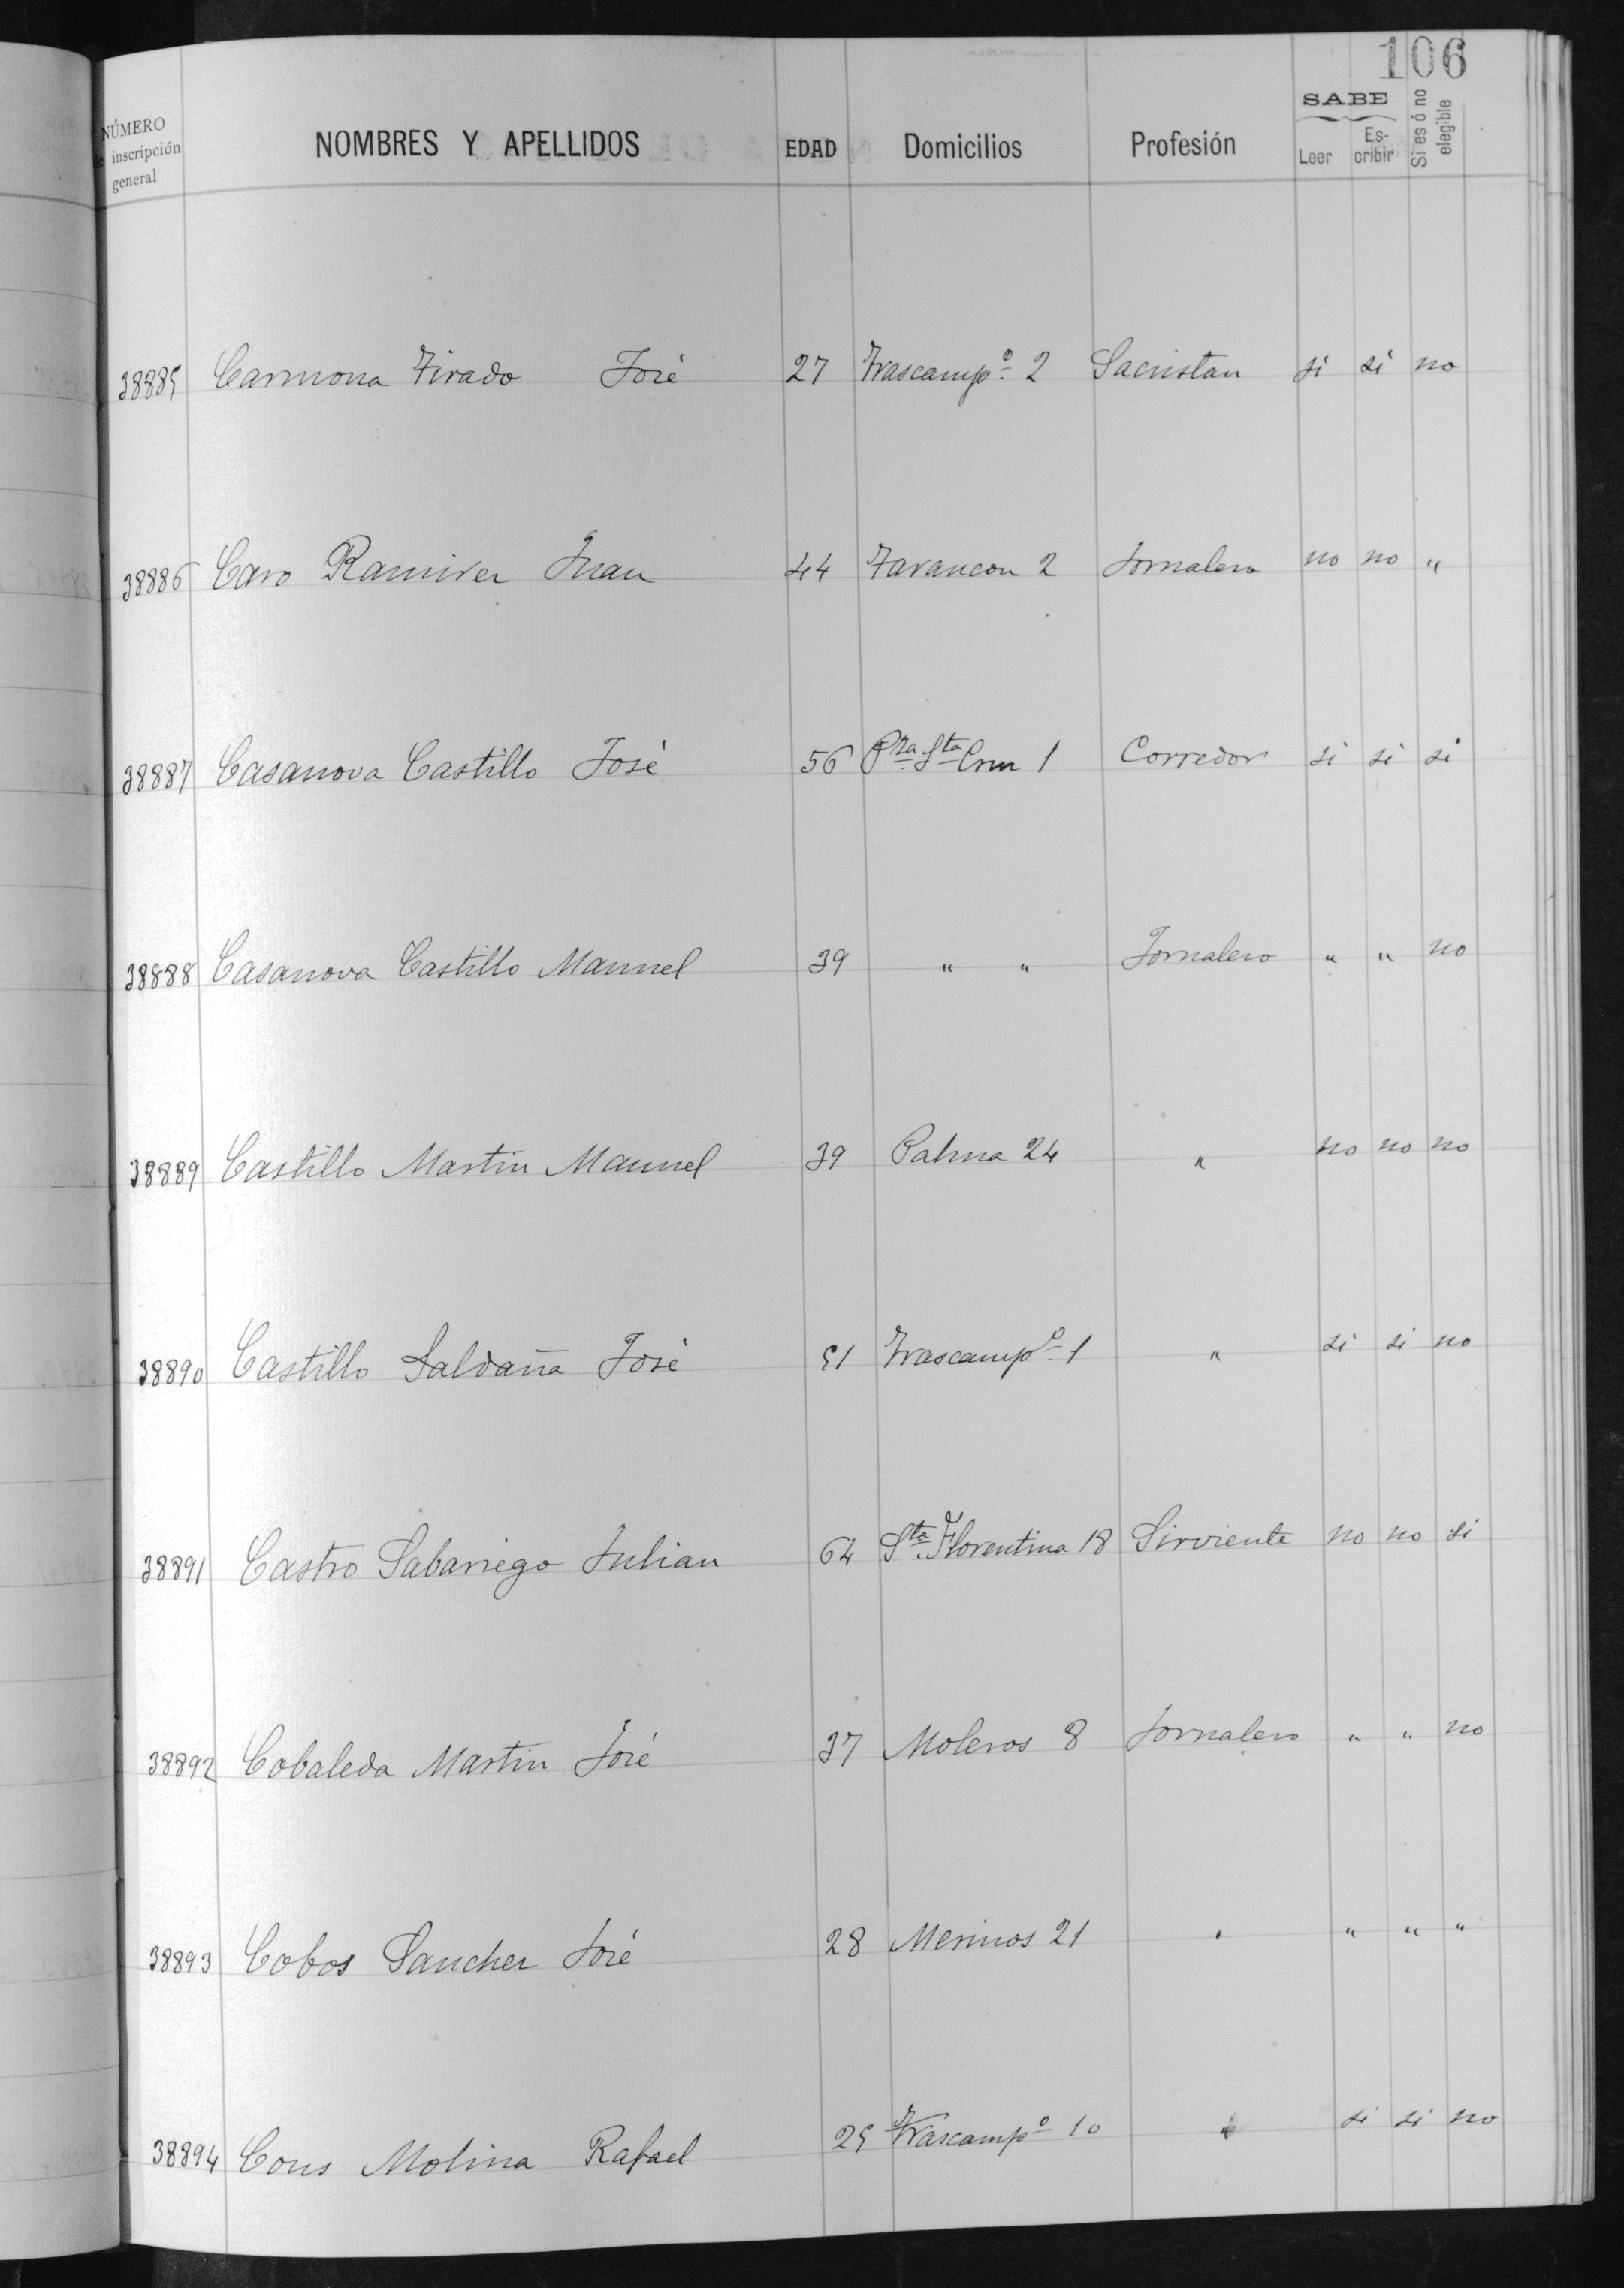 106
NÚMERO
e inscripción
general
NOMBRES Y APELLIDOS
EDAD
Domicilios
Profesión
SABE
Leer
Es-
cribir
Si es ó no
elegible
38885 Carmona Tirado José 27 Trascampº 2 Sacristan si si no
38886 Caro Ramirez Juan 44 Tarancon 2 Jornalero no no "
38887 Casanova Castillo José 56 Pza Sta 1 Corredor si si si
38888 Casanova Castillo Manuel 39 " " Jornalero " " no
38889 Castillo Martin Manuel 39 Palma 24 " no no no
38890 Castillo Saldaña José 51 Trascampº 1 " si si no
38891 Castro Sabariego Julian 64 Sta. Florentina 18 Sirviente no no si
38892 Cobaleda Martin José 37 Moleros 8 Jornalero " " no
38893 Cobos Sanchez José 28 Merinos 21 " " " "
38894 Cons Molina Rafael 25 Trascampº 10 " si si no